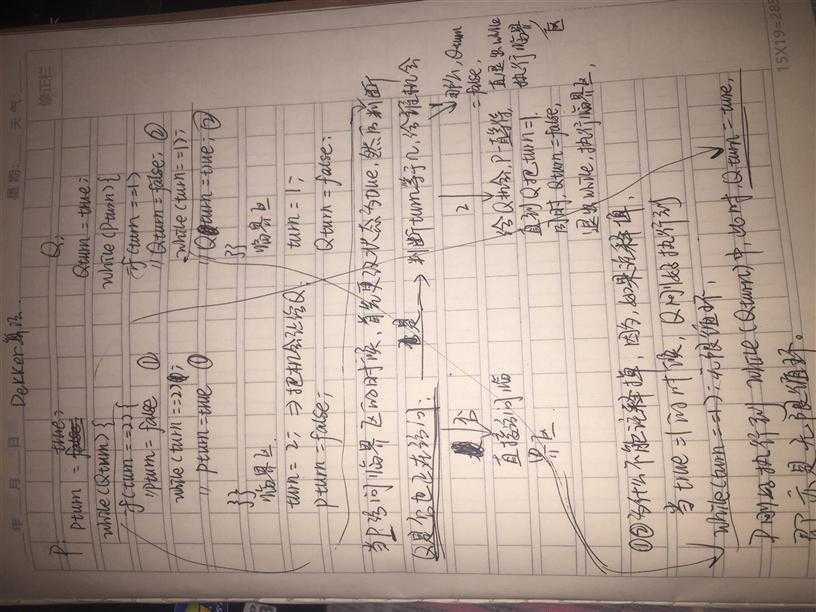 年 月 日
星期: 天气:
Dekker算法.
P:
pturn = true;
while(Qturn){
if(turn==2){
//pturn=false ①
while(turn==2);
//pturn=true ①
}}
临界区
turn=2; ⇒把机会让给Q;
pturn=false;
Q:
Qturn=true;
while(Pturn){
if(turn==1)
//Qturn=false; ②
while(turn==1);
//Qturn=true; ②
}}
临界区
turn=1;
Qturn=false;
当P访问临界区的时候,首先更改状态为true,然后判断
Q是否也正在访问: 是→判断turn等于几,给谁机会
否
直接访问临
界区
2
给Q机会,P一直等待,
直到Q把turn=1,
同时Qturn=false,
退出while,执行临界区,
那么,Qturn
=false,
直退出while
执行临界
区
①②为什么不能注释掉,因为,如果注释掉,
当turn=1的时候,Q刚好执行到
while(turn==1);无限循环,
P刚好执行到while(Qturn)中,此时,Qturn=true,
即亦是无限循环。
15X19=285